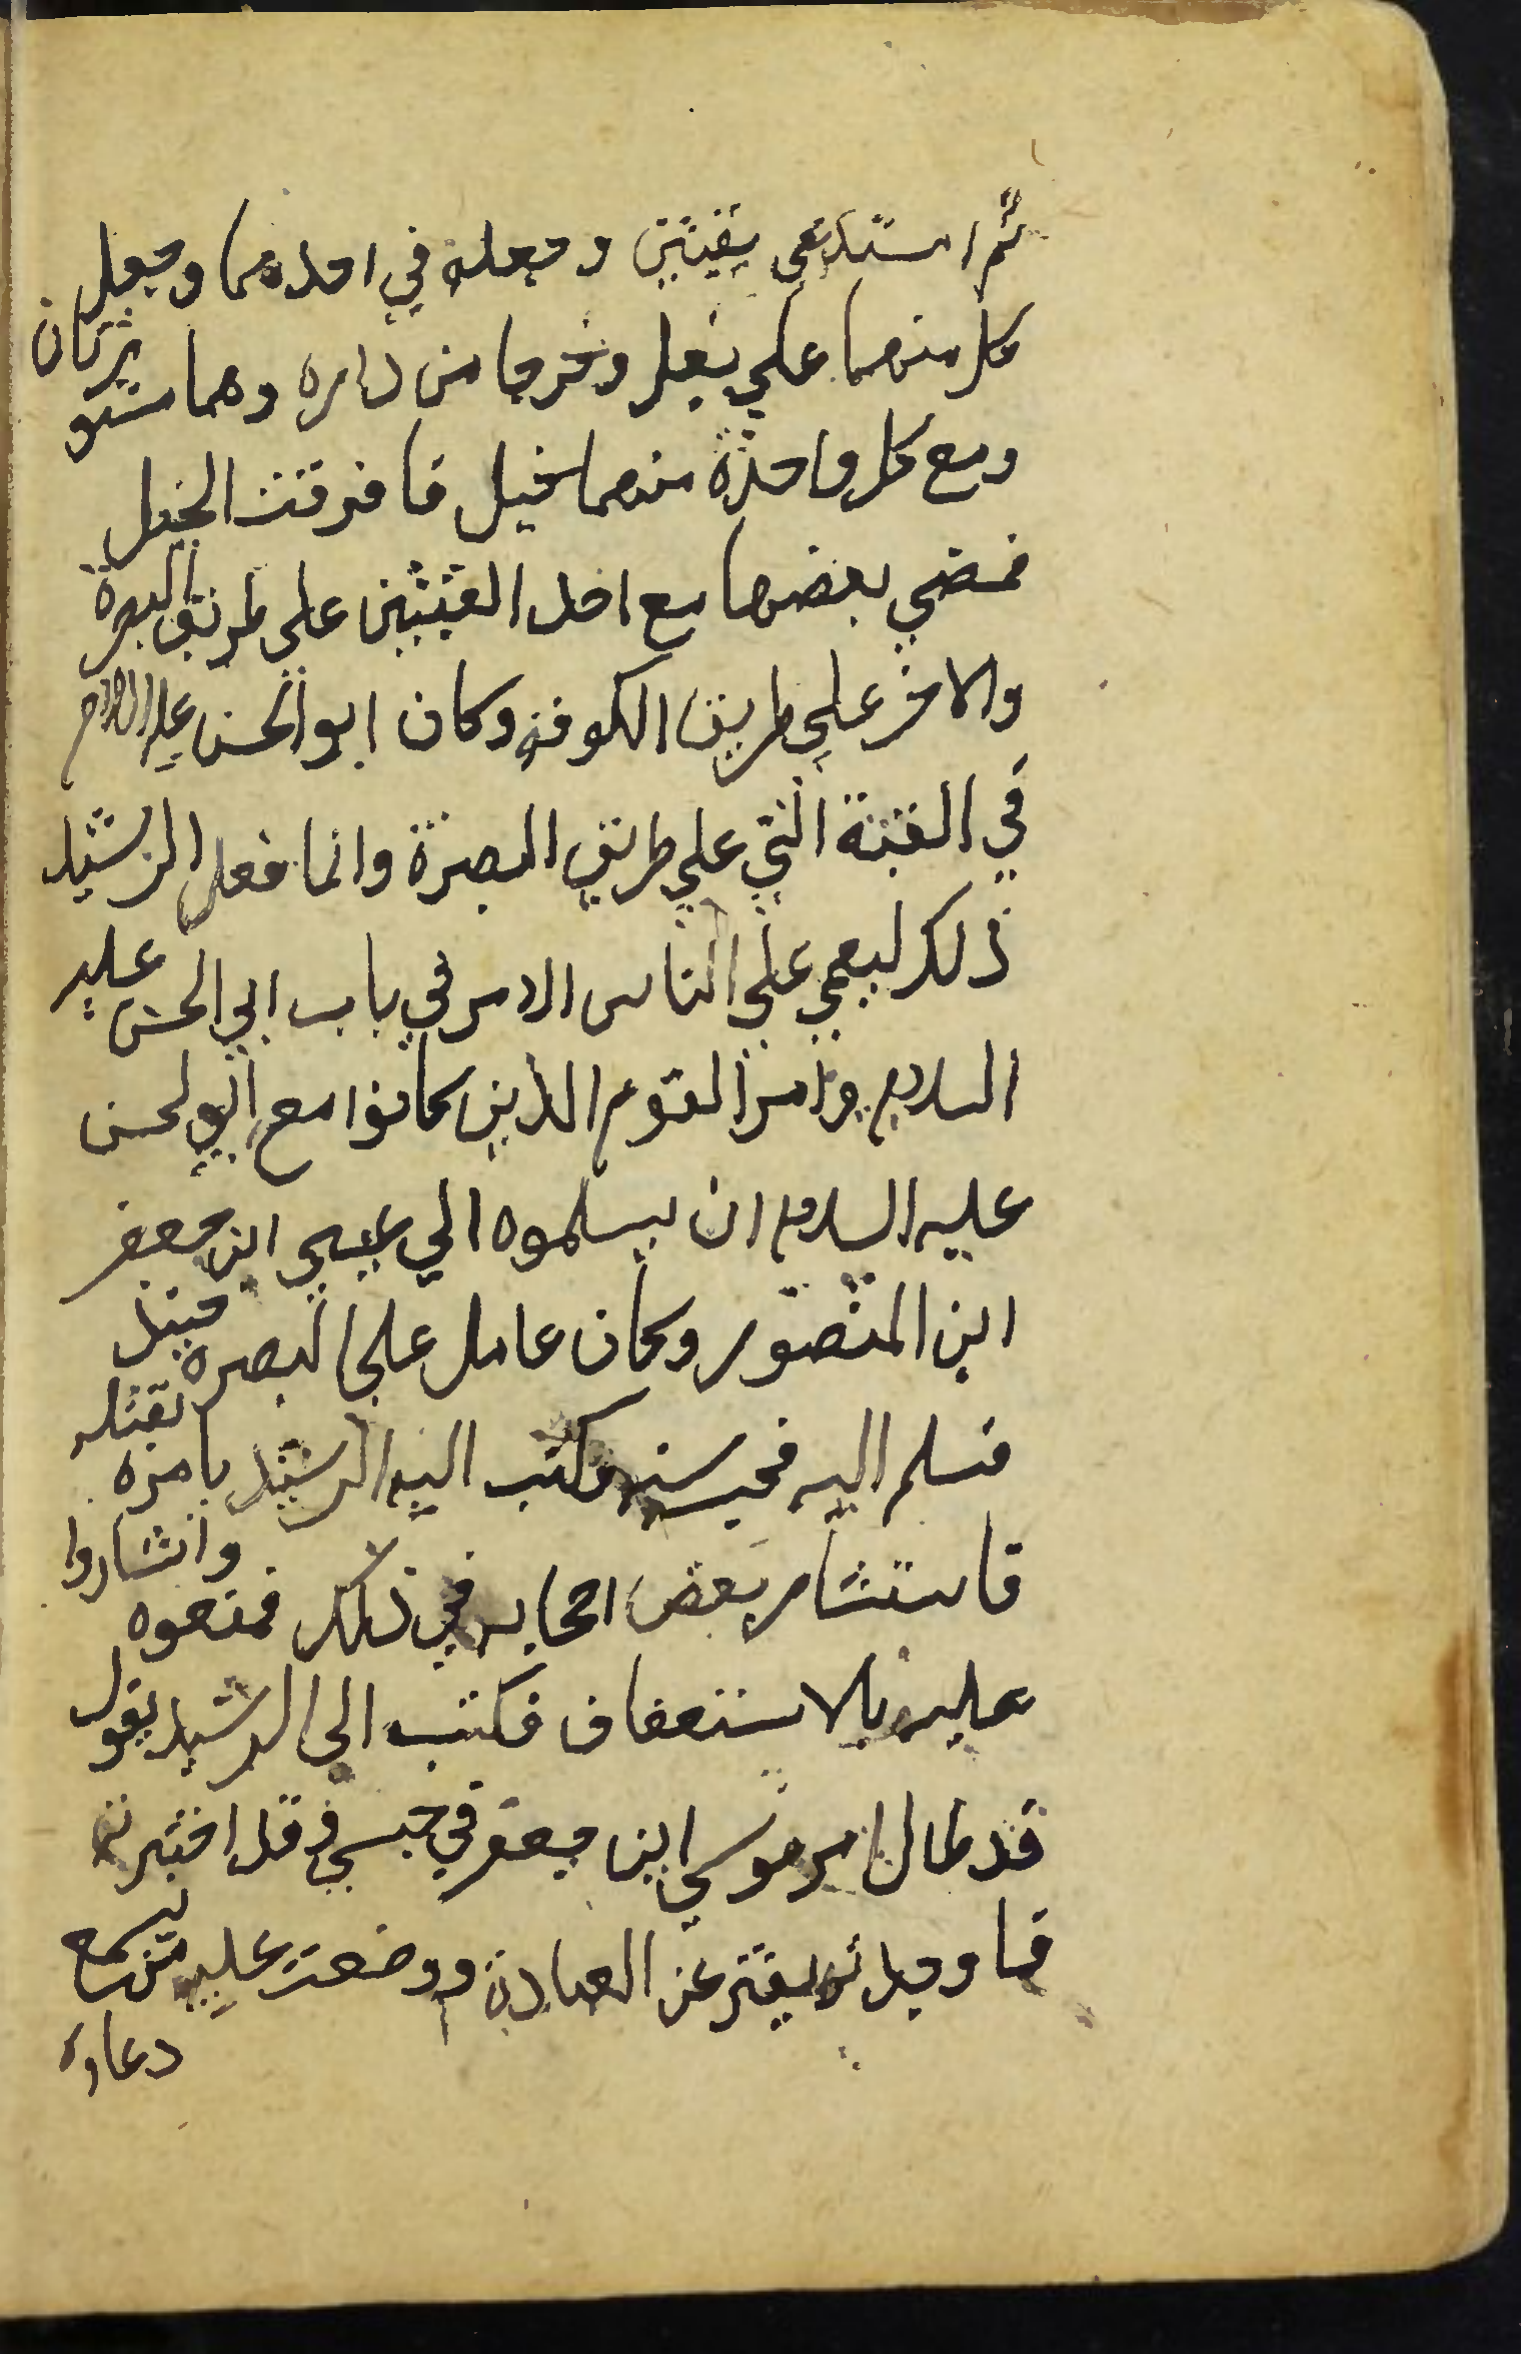 ثم استدعى بقبتين وجعله في احدهما وجعل
كل منهما علي بغل وخرجا من داره وهما مستورتان
ومع كل واحدة منهما خيل فافرقت الخيل
فمضي بعضها مع احد القبتين علي طريق البصرة
والاخر علي طريق الكوفه وكان ابو الحسن عليه السلام
في القبة التي علي طريق البصرة وانما فعل الرشيد
ذلك ليعمي علي الناس الامر في باب ابي الحسن عليه
السلام وامر القوم الذين كانوا مع ابو لحسن
عليه السلام ان يسلموه الي عيسى ابن جعفر
ابن المنصور وكان عامل على البصره حينئذ
فسلم اليه فحبسه سنه وكتب اليه الرشيد يامره بقتله
فاستشار بعض اصحابه في ذلك فمنعوه واشاروا
عليه بالاستعفاف فكتب الى الرشيد يقول
قد طال امر موسى ابن جعفر في حبسي وقد اختبرته
فما وجدته يفتر عن العبادة ووضعت عليه من يسمع
دعاءه